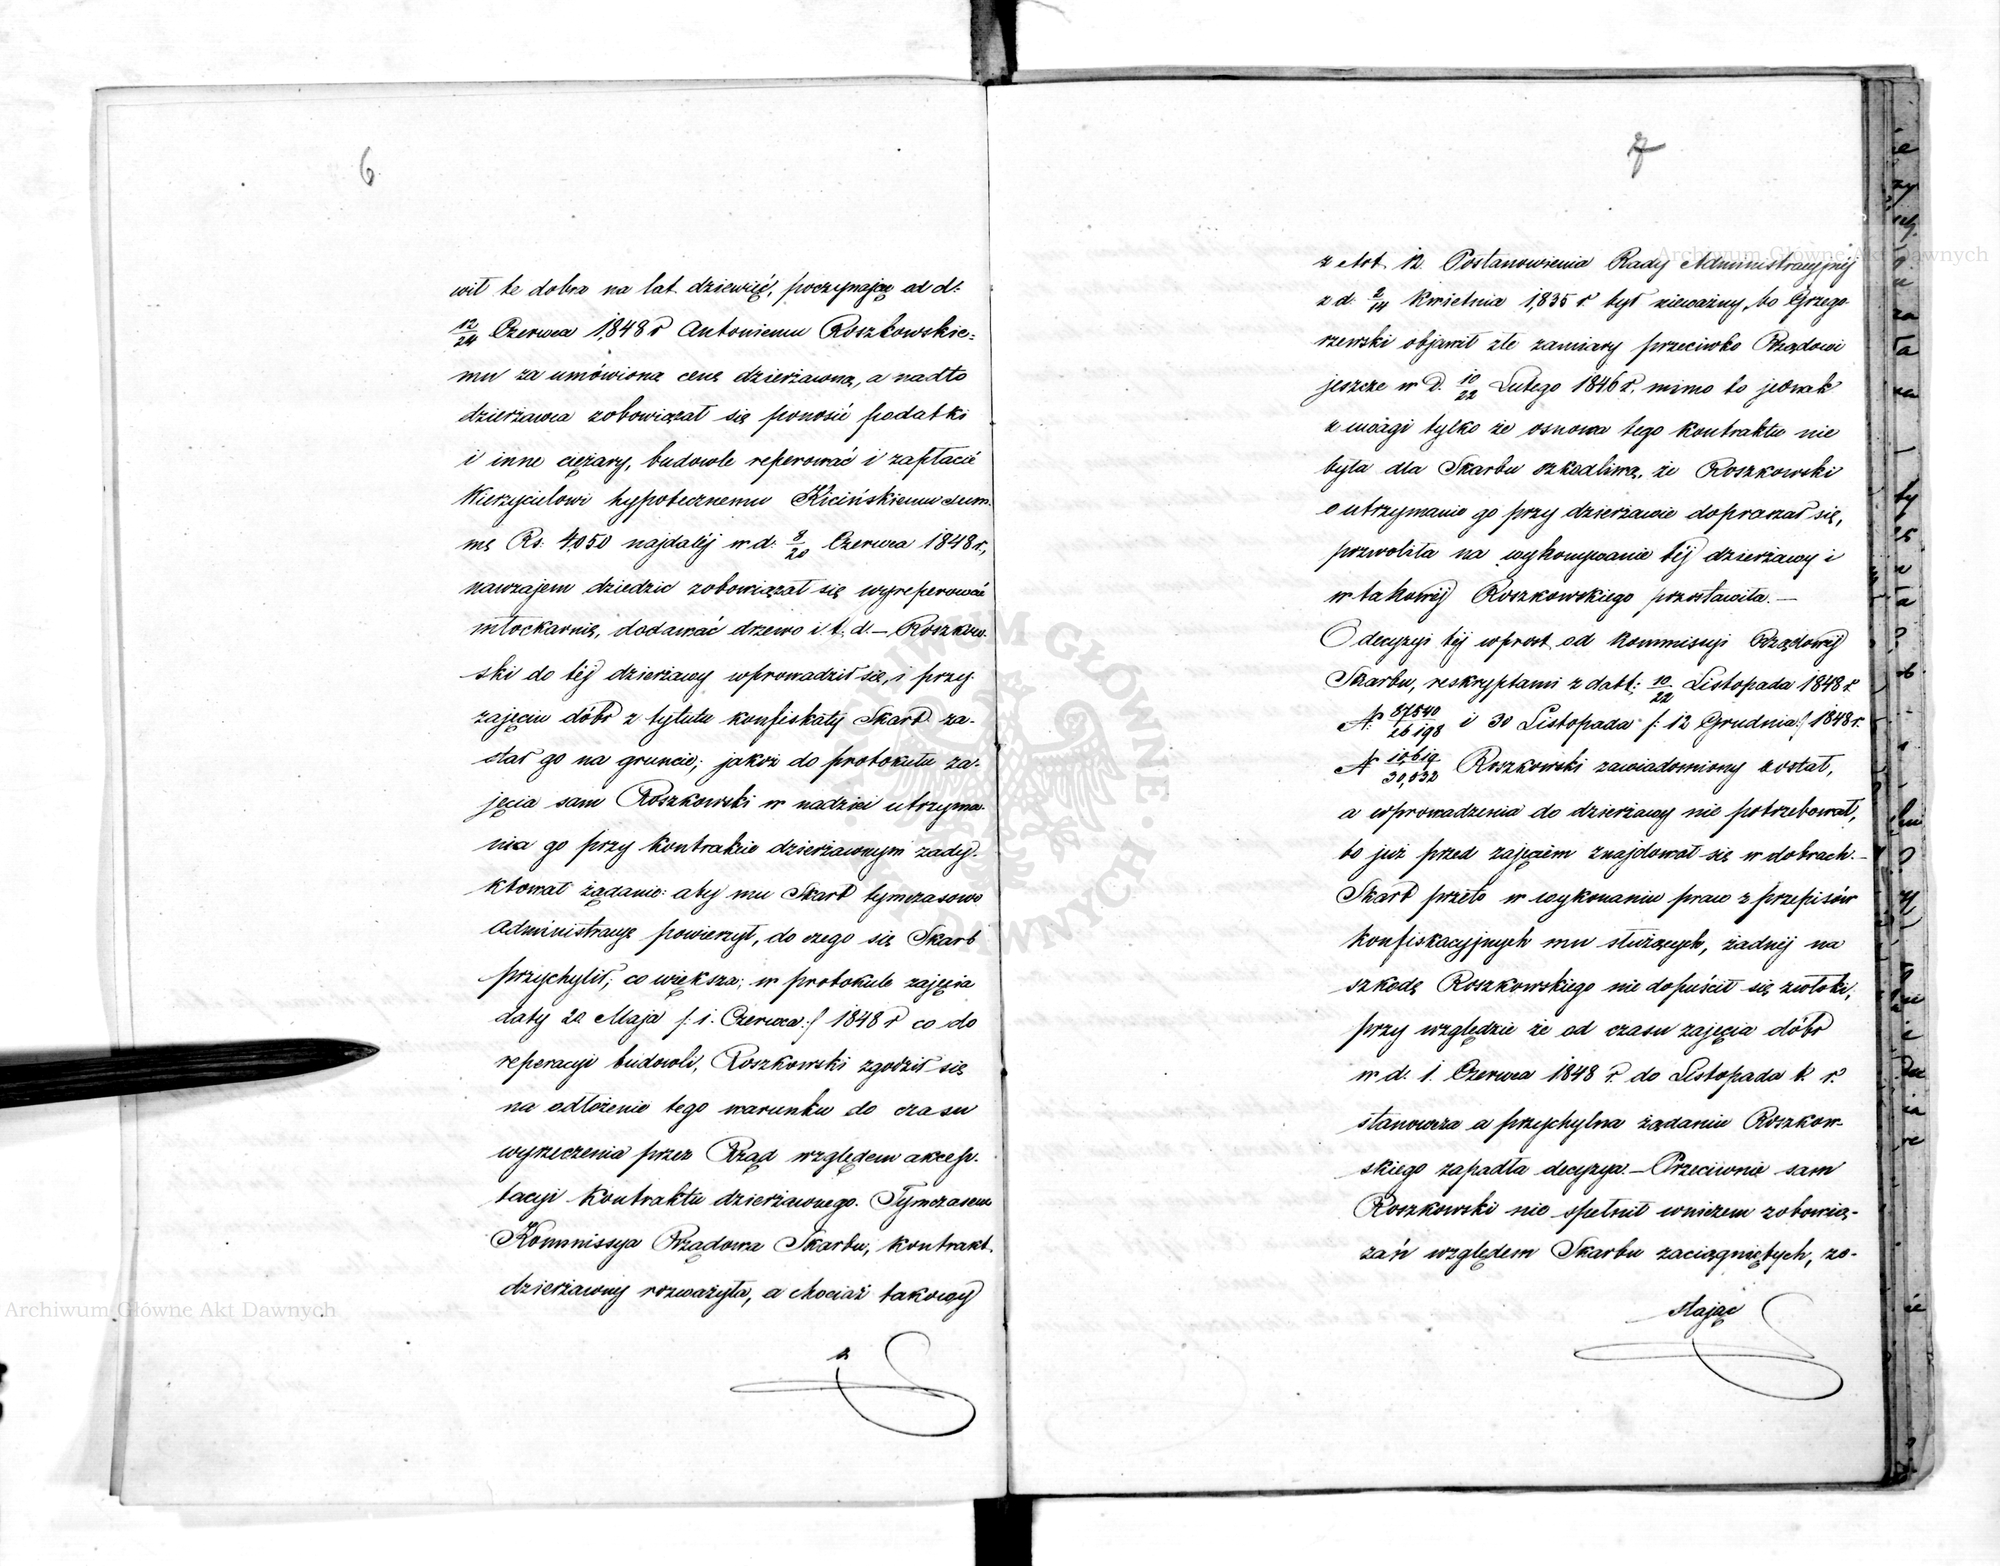 6
wił te dobra na lat dziewięć, poczynając od d:
12/24 Czerwca 1,848 r Antoniemu Roszkowskie=
mu za umówioną cenę dzierżawną, a nadto
dzierżawca zobowiązał się ponosić podatki
i inne ciężary, budowle reperować i zapłacić
Wierzycielowi hypotecznemu Kicińskiemu Sum.
mę Rs: 4,050 najdaléj w d: 8/20 Czerwca 1848 r,
nawzajem dziedzic zobowiązał się wyreperować
młockarnię, dodawać drzewo i. t. d. — Roszkow.
ski do téj dzierżawy wprowadził się, i przy
zajęciu dóbr z tytułu konfiskaty Skarb za-
stał go na gruncie; jakoż do protokułu za-
jęcia sam Roszkowski w nadziei utrzyma-
nia go przy kontrakcie dzierżawnym zady-
ktował żądanie: aby mu Skarb tymczasowo
Administracyę powierzył, do czego się Skarb
przychylił; co większa; w protokule zajęcia
daty 20 Maja /: 1. Czerwca :/ 1848 r co do
reperacyi budowli, Roszkowski zgodził się
na odłożenie tego warunku do czasu
wyrzeczenia przez Rząd względem akcep-
tacyi kontraktu dzierżawnego. Tymczasem
Kommissya Rządowa Skarbu, kontrakt
dzierżawny rozważyła, a chociaż takowy
z
7
z Art. 12. Postanowienia Rady Administracyjnéj
z d: 2/14 Kwietnia 1,835 r. był nieważny, bo Grzego
rzewski objawił złe zamiary przeciwko Rządowi
jeszcze w D. 10/22 Lutego 1846 r. mimo to jednak
z uwagi tylko że osnowa tego kontraktu nie
była dla Skarbu szkodliwą, że Roszkowski
o utrzymanie go przy dzierżawie dopraszał się,
przwoliła na wykonywanie téj dzierżawy i
w takowéj Roszkowskiego pozostawiła. —
O decyzyi téj wprost od Kommissyi Rządowéj
Skarbu, reskryptami z datt: 10/22 Listopada 1848 r.
N: 87540/26198 i 30 Listopada /: 12 Grudnia :/ 1848 r.
N Roszkowski zawiadomiony został,
a wprowadzenia do dzierżawy nie potrzebował,
bo już przed zajęciem znajdował się w dobrach. —
Skarb przeto w wykonaniu praw z przepisów
konfiskacyjnych mu służących, żadnéj na
szkodę Roszkowskiego nie dopuścił się zwłoki,
przy względzie że od czasu zajęcia dóbr
w d: 1. Czerwca 1848 r. do Listopada t. r.
stanowcza a przychylna żądaniu Roszkow-
skiego zapadła decyzya. — Przeciwnie sam
Roszkowski nie spełnił wniczem zobowią-
zań względem Skarbu zaciągniętych, zo-
stając
Archiwum Główne Akt Dawnych
Archiwum Główne Akt Dawnych
ARCHIWUM GŁÓWNE AKT DAWNYCH